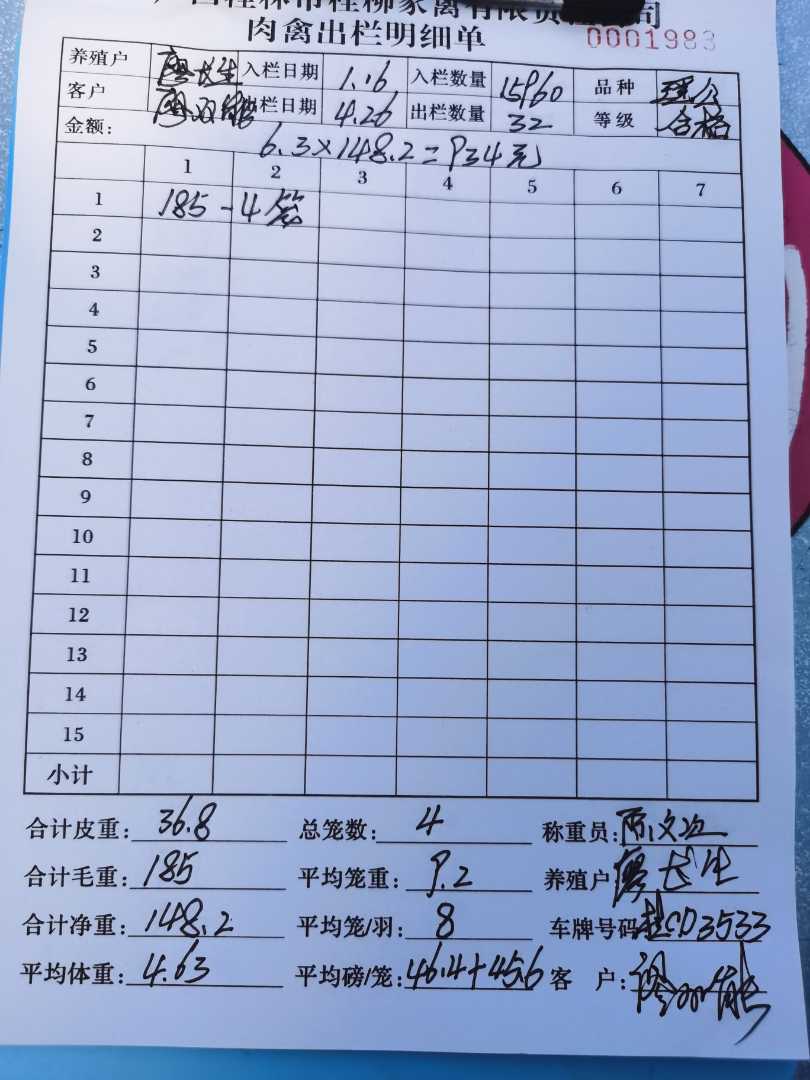 广西桂林市桂柳家禽有限责任公司
肉禽出栏明细单
0001983
养殖户 廖长生 入栏日期 1.16 入栏数量 15960 品种
客户 出栏日期 4.26 出栏数量 32 等级 合格
金额: 6.3×148.2=934元
1 2 3 4 5 6 7
1 185-4笼
2
3
4
5
6
7
8
9
10
11
12
13
14
15
小计
合计皮重: 36.8 总笼数: 4 称重员:
合计毛重: 185 平均笼重: 9.2 养殖户 廖长生
合计净重: 148.2 平均笼/羽: 8 车牌号码 桂CD3533
平均体重: 4.63 平均磅/笼: 46.4+45.6 客 户: